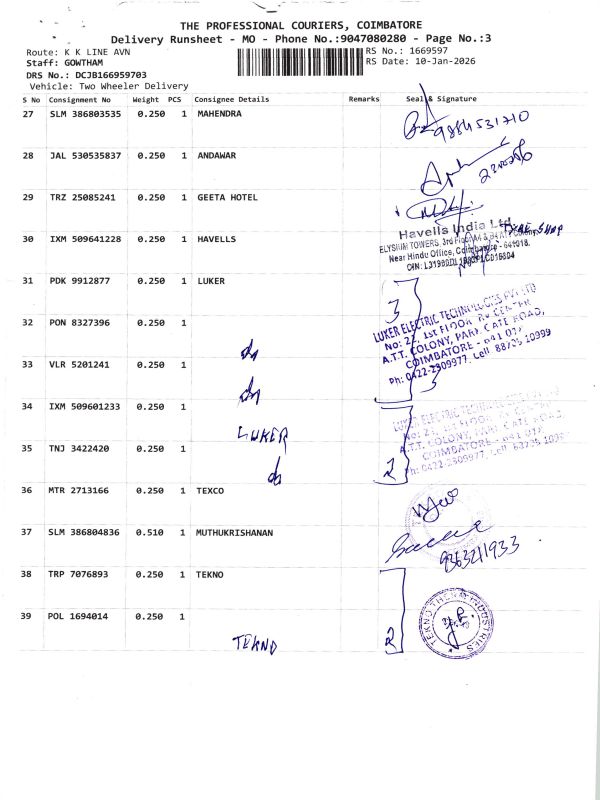 THE PROFESSIONAL COURIERS, COIMBATORE
Delivery Runsheet - MO - Phone No.:9047080280 - Page No.:3
Route: K K LINE AVN
RS No.: 1669597
Staff: GOWTHAM
RS Date: 10-Jan-2026
DRS No.: DCJB166959703
Vehicle: Two Wheeler Delivery
S No Consignment No Weight PCS Consignee Details Remarks Seal & Signature
27 SLM 386803535 0.250 1 MAHENDRA
9884531710
28 JAL 530535837 0.250 1 ANDAWAR
29 TRZ 25085241 0.250 1 GEETA HOTEL
30 IXM 509641228 0.250 1 HAVELLS
Havells India Ltd
ELYSIUM TOWERS, 3rd Floor
Near Hindu Office, Coimbatore - 641018.
31 PDK 9912877 0.250 1 LUKER
3
LUKER ELECTRIC TECHNOLOGIES PVT LTD
No: 22, 1st FLOOR, RV CENTRE
A.T.T. COLONY, PARK GATE ROAD,
COIMBATORE - 641 018
Ph: 0422-2909977, Cell 88705 10999
32 PON 8327396 0.250 1
33 VLR 5201241 0.250 1
3
34 IXM 509601233 0.250 1
LUKER
LUKER ELECTRIC TECHNOLOGIES
A.T.T. COLONY, PARK GATE ROAD,
COIMBATORE
Ph: 0422-2909977,
35 TNJ 3422420 0.250 1
2
36 MTR 2713166 0.250 1 TEXCO
37 SLM 386804836 0.510 1 MUTHUKRISHANAN
9363211933
38 TRP 7076893 0.250 1 TEKNO
TEKNO THERM INDUSTRIES
39 POL 1694014 0.250 1
TEKNO
2